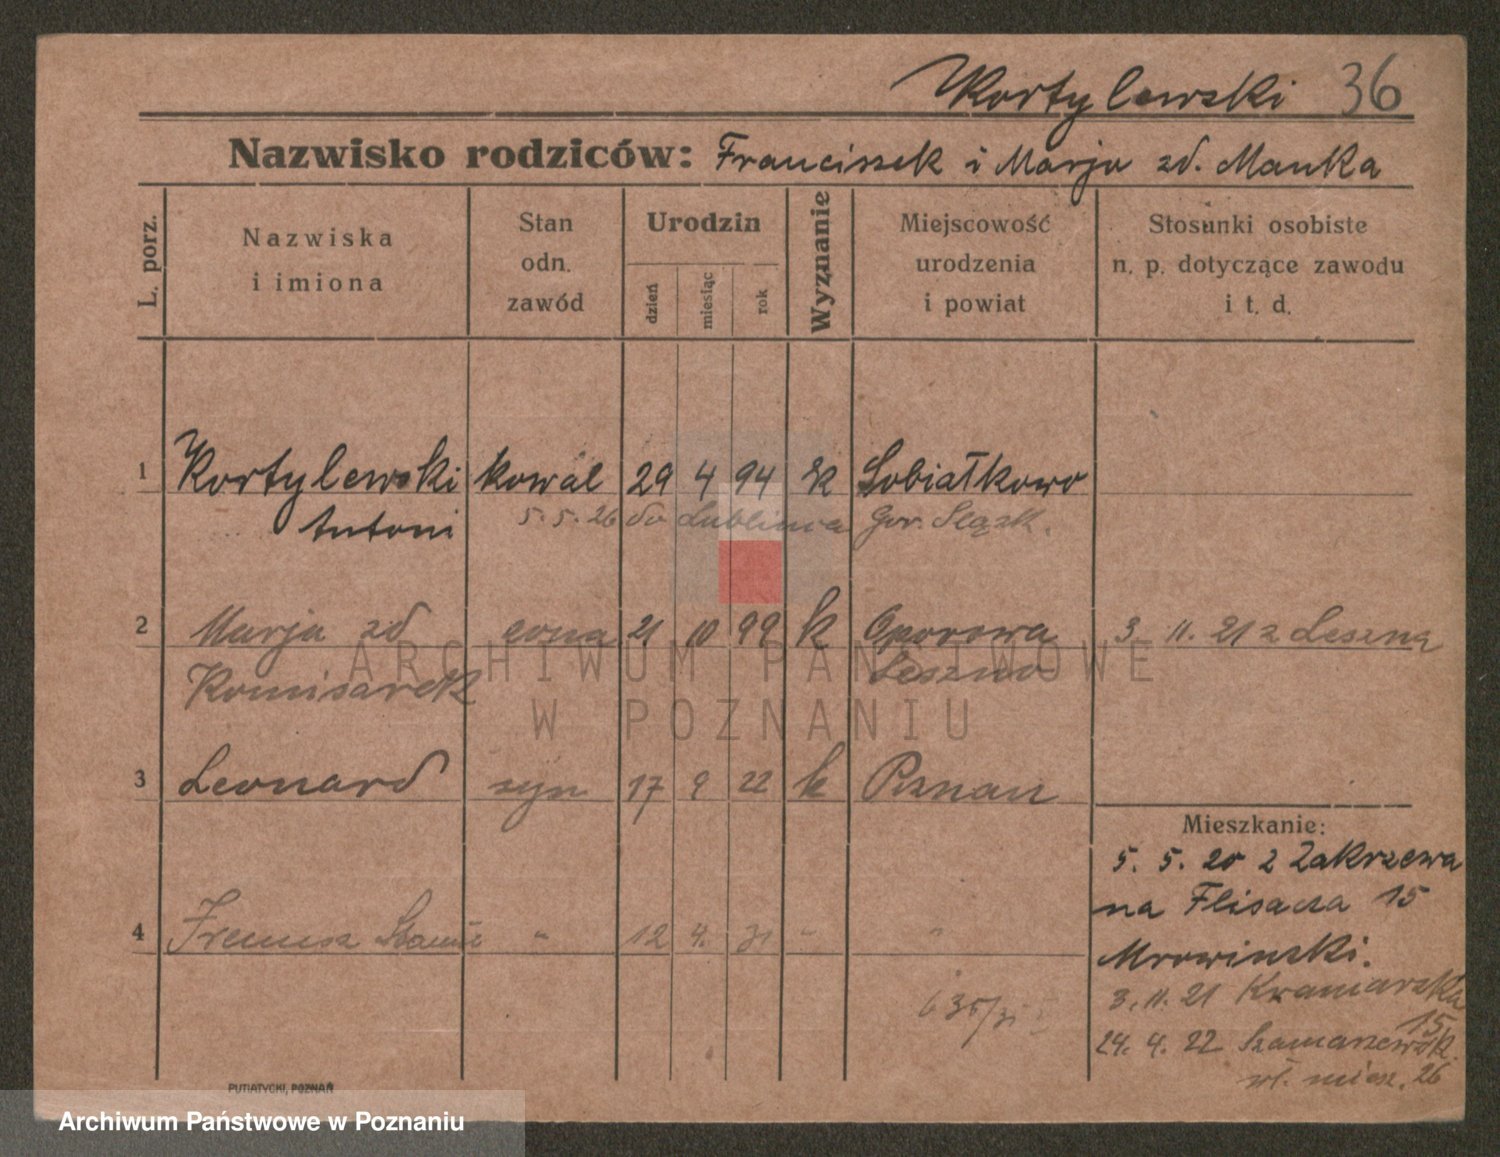 Kortylewski 36
Nazwisko rodziców: Franciszek i Marja zd. Manka
L. porz.
Nazwiska
i imiona
Stan
odn.
zawód
Urodzin
dzień
miesiąc
rok
Wyznanie
Miejscowość
urodzenia
i powiat
Stosunki osobiste
n. p. dotyczące zawodu
i t. d.
1 Kortylewski kowal 29 4 94 rk Sobiałkowo
Antoni 5. 5. 26 do Lublińca Gor. Sląsk.
2 Marja zd żona 21 10 99 k Oporowa 3. 11. 21 z Leszna
Komisarek Leszno
3 Leonard syn 17 9 22 k Poznan
Mieszkanie:
5. 5. 20 z Zakrzewa
na Flisacza 15
4 Ireneusz " 12 4. 31 " "
Mrowinski.
3. 11. 21 Kramarska
15
635/31
24. 4. 22 Szamarzewsk.
wł. miesz. 26
PUTIATYCKI, POZNAŃ
ARCHIWUM PAŃSTWOWE
W POZNANIU
Archiwum Państwowe w Poznaniu